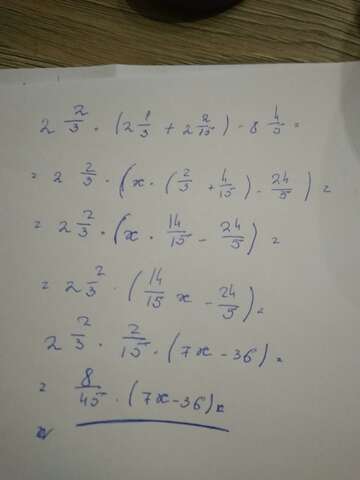 2 2/3 · (2 1/3 + 2 2/15) - 8 4/5 =
= 2 2/3 · (x · (2/3 + 4/15) - 24/5) =
= 2 2/3 · (x · 14/15 - 24/5) =
= 2 2/3 · (14/15 x - 24/5) =
2 2/3 · 2/15 · (7x - 36) =
= 8/45 · (7x - 36)